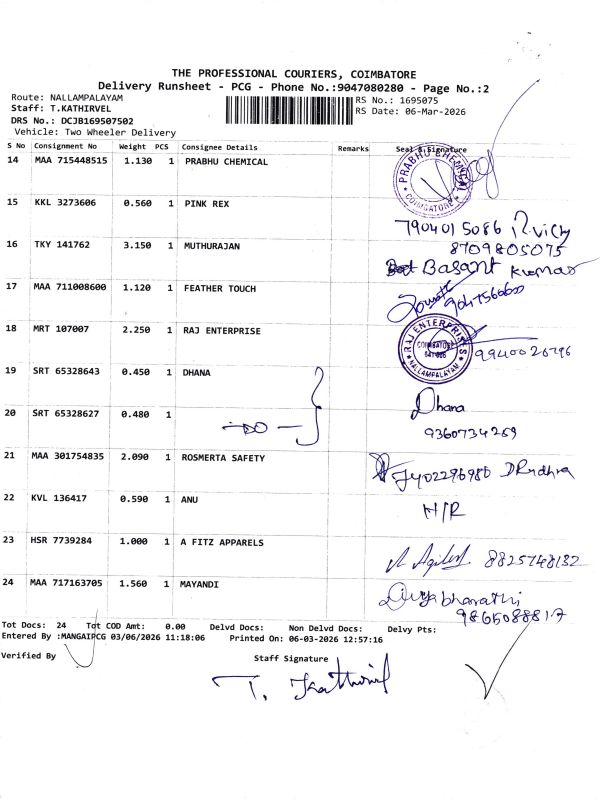 THE PROFESSIONAL COURIERS, COIMBATORE
Delivery Runsheet - PCG - Phone No.:9047080280 - Page No.:2
Route: NALLAMPALAYAM
Staff: T.KATHIRVEL
DRS No.: DCJB169507502
Vehicle: Two Wheeler Delivery
RS No.: 1695075
RS Date: 06-Mar-2026
S No Consignment No Weight PCS Consignee Details Remarks Seal & Signature
14 MAA 715448515 1.130 1 PRABHU CHEMICAL
PRABHU CHEMICAL COIMBATORE
15 KKL 3273606 0.560 1 PINK REX
7904015086 R.Vicky
16 TKY 141762 3.150 1 MUTHURAJAN
8709805075
Basant Kumar
17 MAA 711008600 1.120 1 FEATHER TOUCH
18 MRT 107007 2.250 1 RAJ ENTERPRISE
RAJ ENTERPRISES COIMBATORE NALLAMPALAYAM
9940026796
19 SRT 65328643 0.450 1 DHANA
Dhana
20 SRT 65328627 0.480 1
-DO-
9360734259
21 MAA 301754835 2.090 1 ROSMERTA SAFETY
22 KVL 136417 0.590 1 ANU
H/R
23 HSR 7739284 1.000 1 A FITZ APPARELS
8825748132
24 MAA 717163705 1.560 1 MAYANDI
Divyabharathi
9865088817
Tot Docs: 24 Tot COD Amt: 0.00 Delvd Docs: Non Delvd Docs: Delvy Pts:
Entered By :MANGAIPCG 03/06/2026 11:18:06 Printed On: 06-03-2026 12:57:16
Verified By
Staff Signature
T. Kathirvel